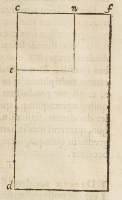 c n f
e
d